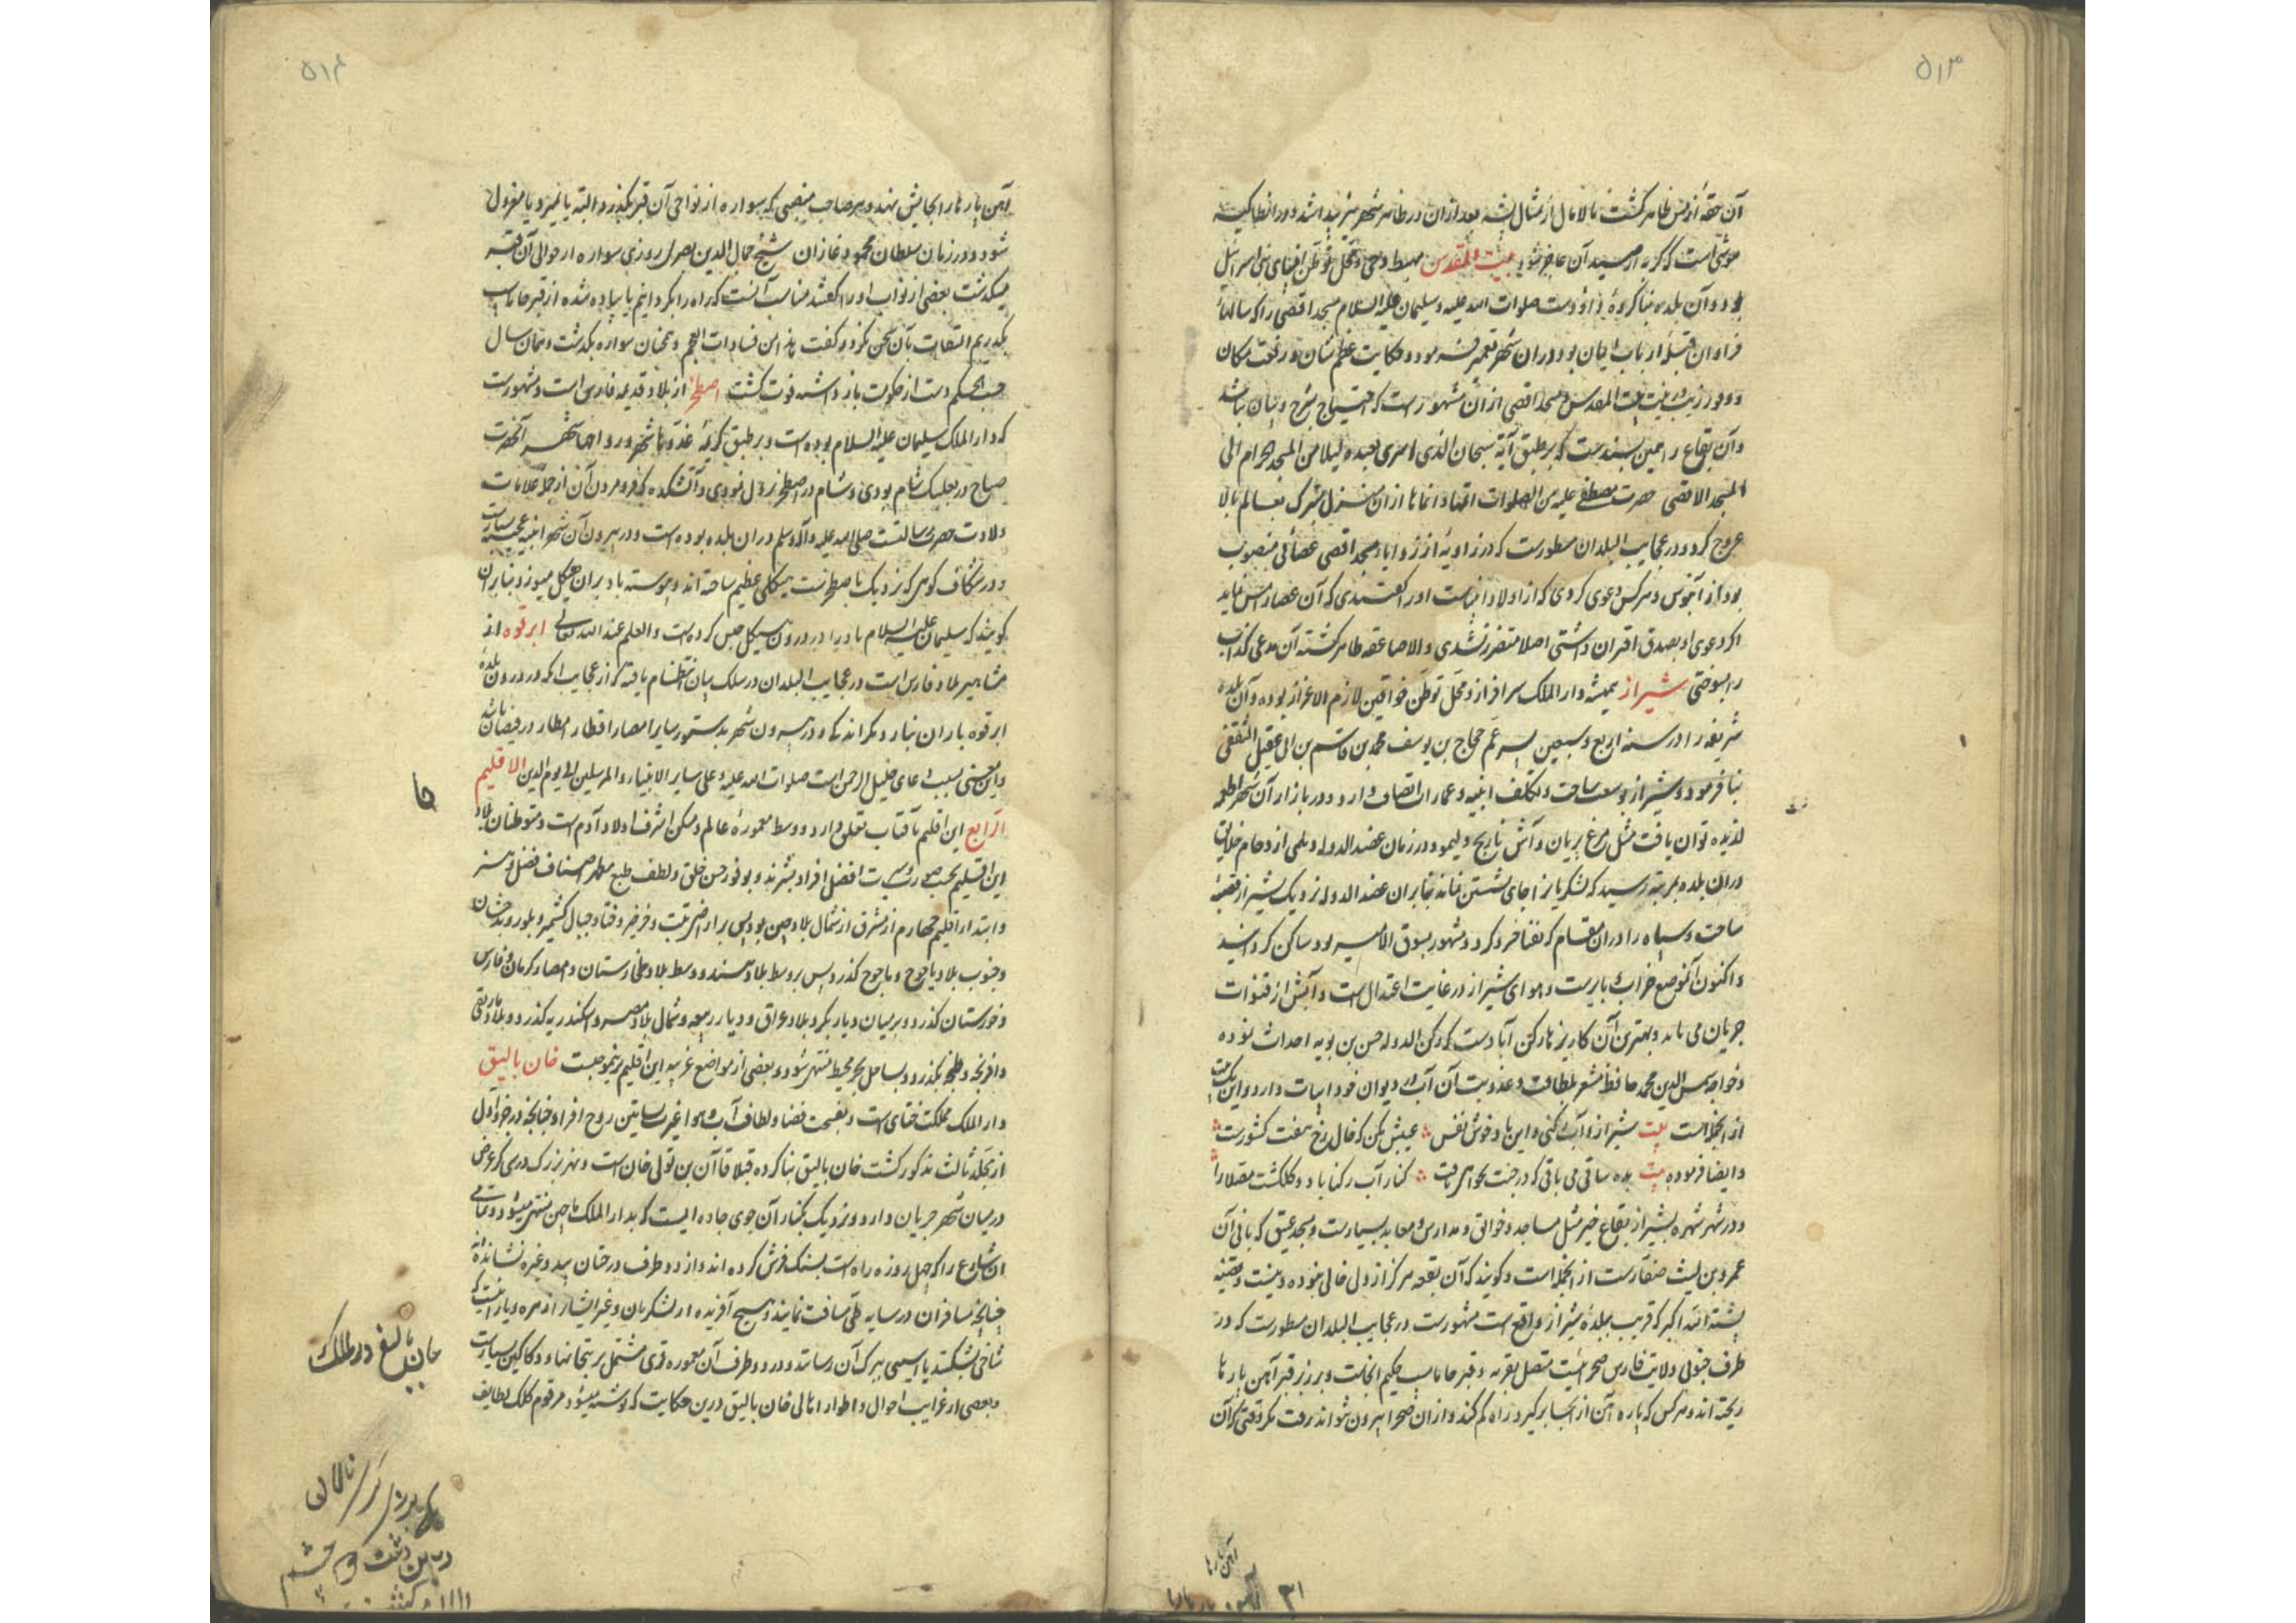 ۵۱۳
آن حقهٔ از مس ظاهر گشت مالامال از مثال پشه بعد ازان در ظاهر شهر نیز پیدا شد و در انطاکیه
موشی است که گربه از صید آن عاجز شود بیت المقدس مهبط وحی و محل توطن انبیای بنی اسرائیل
بود و آن بلده بنا کردهٔ داود است صلوات الله علیه و سلیمان علیه السلام مسجد اقصی را که سالهاء
فراوان قبلهٔ ارباب ایمان بود دران شهر تعمیر فرمود و حکایت عظم شان و رفعت مکان
و وفور زیب و زینت بیت المقدس و مسجد اقصی ازان مشهورتر است که احتیاج بشرح و بیان باشد
و آن بقاع را همین بسندست که بر طبق آیهٔ سبحان الذی اسری بعبده لیلا من المسجد الحرام الی
المسجد الاقصی حضرت مصطفی علیه من الصلوات اتمها و انماها ازان منزل متبرک بعالم بالا
عروج کرد و در عجایب البلدان مسطورست که در زاویهٔ از زوایاء مسجد اقصی عصائی منصوب
بود از آبنوس و هر کس دعوی کردی که از اولاد انبیاست او را گفتندی که آن عصا را مس نماید
اگر دعوی او بصدق اقتران داشتی اصلا متضرر نشدی و الا صاعقه ظاهر گشته آن مدعی کذاب
را بسوختی شیراز همیشه دار الملک سرافراز و محل توطن خواقین لازم الاعزاز بوده و آن بلده
شریفه را در سنه اربع و سبعین پسر عم حجاج بن یوسف محمد بن قاسم بن ابی عقیل الثقفی
بنا فرمود و شیراز بوسعت ساحت و تکلف ابنیه و عمارات اتصاف دارد و در بازار آن شهر اطعمه
لذیذه توان یافت مثل مرغ بریان و آش نارنج و لیمو و در زمان عضد الدوله دیلمی ازدحام خلایق
دران بلده بمرتبه رسید که لشکریانرا جای نشستن نماند بنابران عضد الدوله نزدیک شیراز قصبهٔ
ساخت و سپاه را دران مقام که بفنا خسرو کرد و مشهور بسوق الامیر بود ساکن گردانید
و اکنون آنموضع خراب و بایرست و هوای شیراز در غایت اعتدال است و آبش از قنوات
جریان می یابد و بهترین آن کاریزها رکن آبادست که رکن الدوله حسن بن بویه احداث نموده
و خواجه شمس الدین محمد حافظ مشعر بلطافت و عذوبت آن آب در دیوان خود ابیات دارد و این بیت
از انجمله است بیت شیراز و آب رکنی و این باد خوش نفس عیبش مکن که خال رخ هفت کشورست
و ایضا فرموده بیت بده ساقی می باقی که در جنت نخواهی یافت کنار آب رکناباد و گلگشت مصلا را
و در شهر شهره شیراز بقاع خیر مثل مساجد و خوانق و مدارس و معابد بسیارست و مسجد عتیق که بانی آن
عمرو بن لیث صفارست از انجمله است و گویند که آن بقعه هرگز از ولی خالی نبوده و نیست و قضیه
پشته الله اکبر که قریب ببلدهٔ شیراز واقع است مشهورست در عجایب البلدان مسطورست که در
طرف جنوبی ولایت فارس صحرائیست متصل بقریه و قبر جاماسب حکیم آنجاست و بر زبر قبر آهن پارها
ریخته اند و هر کس که پاره آهن از انجا برگیرد راه گم کند و ازان صحرا بیرون نتواند رفت مگر وقتی که آن
آهن پارها
۳۱
۵۱۴
آهن پارها را بجایش نهد و هر صاحب منصبی که سواره از نواحی آن قبر بگذرد البته یا بمیرد یا معزول
شود و در زمان سلطان محمود غازان شیخ جمال الدین مصری روزی سواره از حوالی آن قبر
میگذشت بعضی از نواب او را گفتند مناسب آنست که راه را بگردانیم یا پیاده شده از قبر جاماسب
بگذریم التفات بآن سخن نکرد و گفت هذا من فسادات العجم و همچنان سواره بگذشت و همان سال
حسب الحکم دست از حکومت باز داشته فوت گشت اصطخر از بلاد قدیمه فارس است و مشهورست
که دار الملک سلیمان علیه السلام بوده است و بر طبق کریمهٔ غدوها شهر و رواحها شهر آنحضرت
صباح در بعلبک شام بودی و شام در اصطخر نزول نمودی و آتشکده که فرو مردن آن از جمله علامات
ولادت حضرت رسالتست صلی الله علیه و آله و سلم دران بلده بوده است و در بیرون آن شهر ابنیه عجیبه بسیارست
و در شکاف کوهی که نزدیک باصطخرست هیکلی عظیم ساخته اند و پیوسته باد بران هیکل میوزد بنابران
گویند که سلیمان علیه السلام باد را در درون هیکل حبس کرده است و العلم عند الله تعالی ابرقوه از
مشاهیر بلاد فارس است در عجایب البلدان در سلک بیان انتظام یافته که از عجایب آنکه در درون بلدهٔ
ابرقوه باران نبارد مگر اندکی و در بیرون شهر بدستور سایر امصار اقطار امطار در فیضان باشد
و این معنی بسبب دعای خلیل الرحمن است صلوات الله علیه و علی سایر الانبیاء و المرسلین الی یوم الدین الاقلیم
الرابع این اقلیم بآفتاب تعلق دارد و وسط معموره عالم و مسکن اشرف اولاد آدم است و متوطنان بلاد
این اقلیم بحسب صورت و سیرت افضل افراد بشرند و بوفور حسن خلق و لطف طبع مظهر اصناف فضل و هنر
و ابتداء اقلیم چهارم از مشرق از شمال بلاد چین بود پس بر اراضی تبت و خرخیز و ختا و جبال کشمیر و بلور و بدخشان
و جنوب بلاد یاجوج و ماجوج گذرد پس بر وسط بلاد هند و وسط بلاد طخارستان و امصار کرمان و فارس
و خوزستان گذرد و بر میان دیار بکر و بلاد عراق و دیار ربیعه و شمال بلاد مصر و اسکندریه گذرد و بلاد
و افرنجه و طنجه بگذرد و بساحل بحر محیط منتهی شود و بعضی از مواضع غریبه این اقلیم برینموجبست خان بالیق
دار الملک مملکت ختای است و بفسحت فضا و لطافت آب و هوا غیرت بساتین روح افزا و چنانچه در جزو اول
از مجلد ثالث مذکور گشت خان بالیق بنا کرده قبلا قاآن بن تولی خان است و نهر بزرگ در وی که عرض
در میان شهر جریان دارد و نزدیک بکنار آن جوی جاده ایست که بدار الملک ماچین منتهی میشود و تمامی
ان شارع را که چهل روزه راه است بسنگ فرش کرده اند و از دو طرف درختان بید و غیره نشانده
چنانچه مسافران در سایه طی مسافت نمایند و هیچ آفریده از لشکریان و غیر ایشان زهره و یارا نیست که
شاخی بشکند یا آسیبی ببرگ آن رساند و در دو طرف آن معموره قری مشتمل بر بتخانها و دکاکین بسیارست
و بعضی از غرایب احوال و اطوار اهالی خان بالیق درین حکایت که نوشته میشود مرقوم کلک لطایف
خان بالیغ در ملک